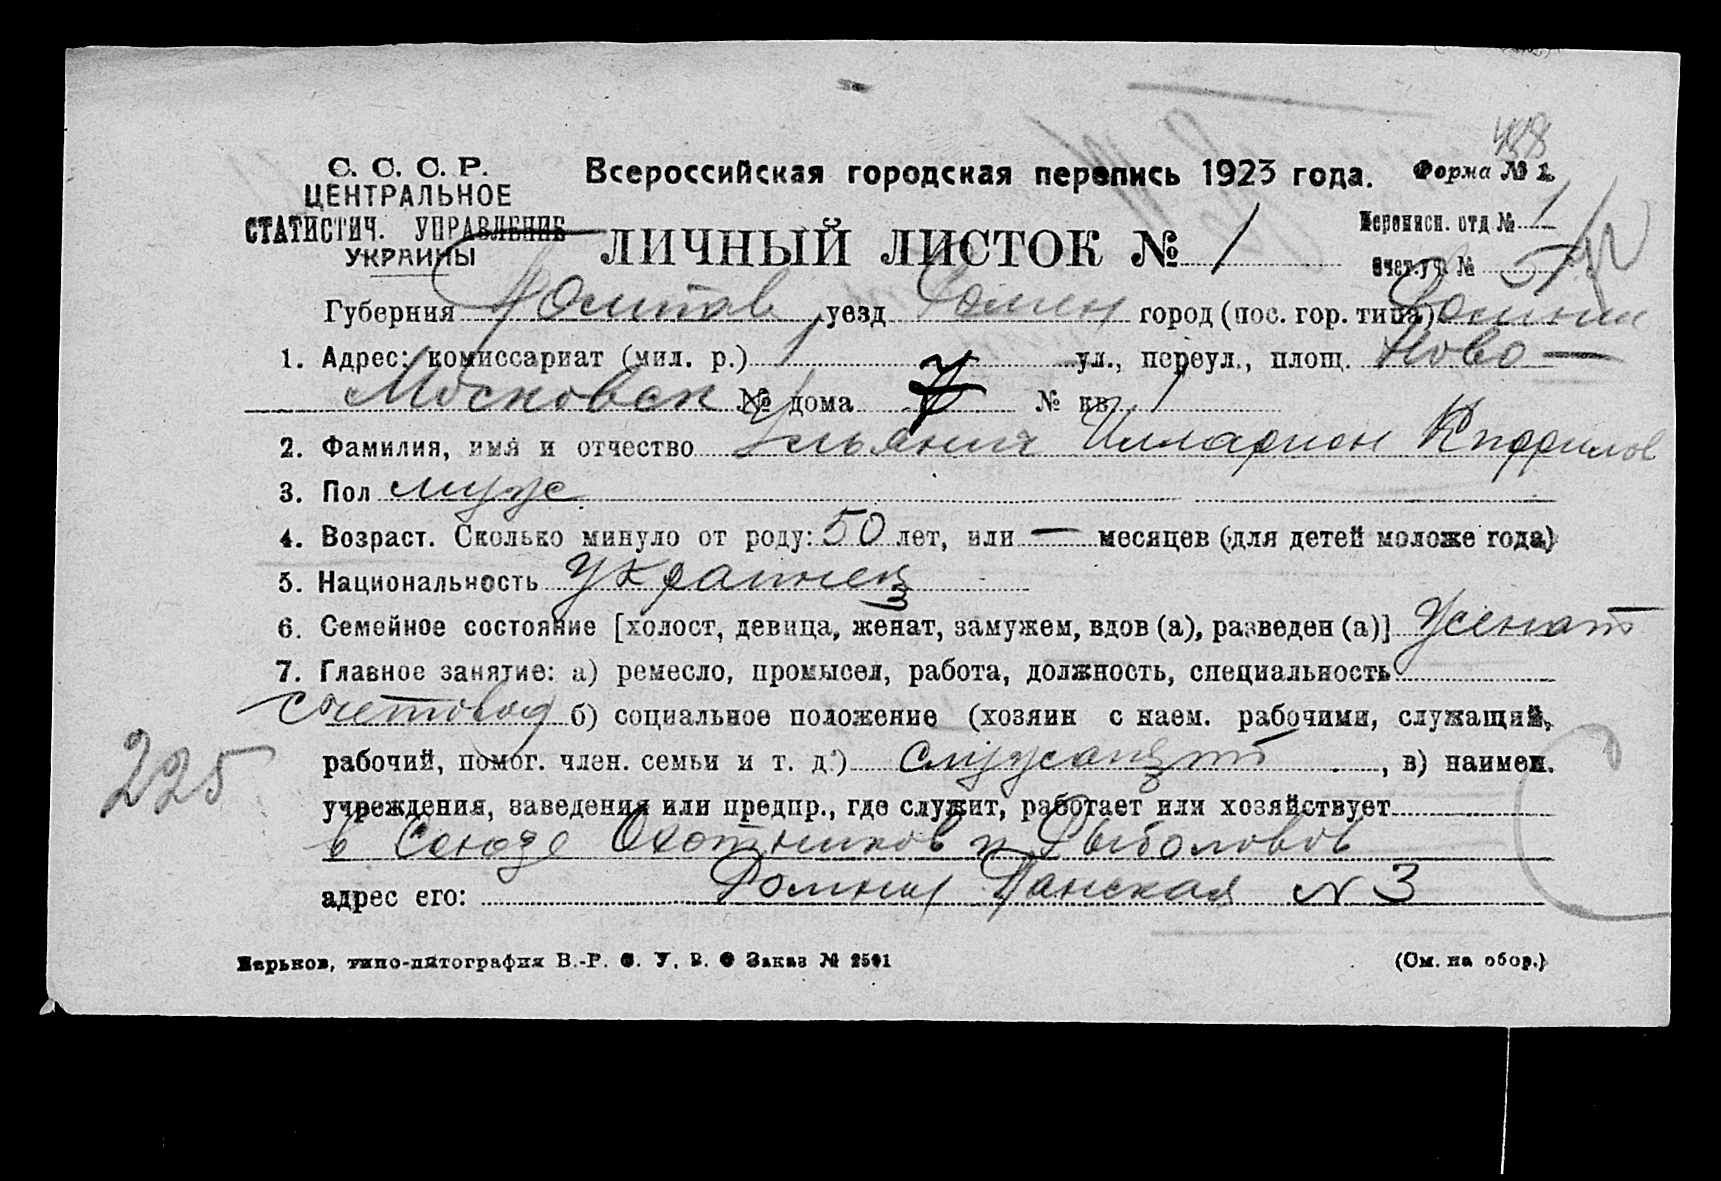 С. С. С. Р.
ЦЕНТРАЛЬНОЕ
СТАТИСТИЧ. УПРАВЛЕНИЕ
УКРАИНЫ
Всероссийская городская перепись 1923 года.
Форма № 1.
ЛИЧНЫЙ ЛИСТОК № 1
Переписн. отд № 1
Счетн. уч. № 5
Губерния Полтав уезд Ромен город (пос. гор. типа) Ромны
1. Адрес: комиссариат (мил. р.) 1 ул., переул., площ. Ново—
Московск № дома 7 № кв. 1
2. Фамилия, имя и отчество Ульянич Илларион
3. Пол муж
4. Возраст. Сколько минуло от роду: 50 лет, или — месяцев (для детей моложе года)
5. Национальность Украинец
6. Семейное состояние [холост, девица, женат, замужем, вдов (а), разведен (а)] Женат
7. Главное занятие: а) ремесло, промысел, работа, должность, специальность
счетовод б) социальное положение (хозяин с наем. рабочими, служащий,
рабочий, помог. член. семьи и т. д.) служащий, в) наимен.
учреждения, заведения или предпр., где служит, работает или хозяйствует
в Союзе Охотников и Рыболовов
адрес его: Ромны Панская № 3
225
Харьков, типо-литография В.-Р. С. У. В. О Заказ № 2501
(См. на обор.)